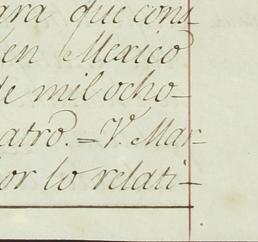 ara que cons-
en Mexico
de mil ocho-
atro. = V. Mar-
or lo relati-